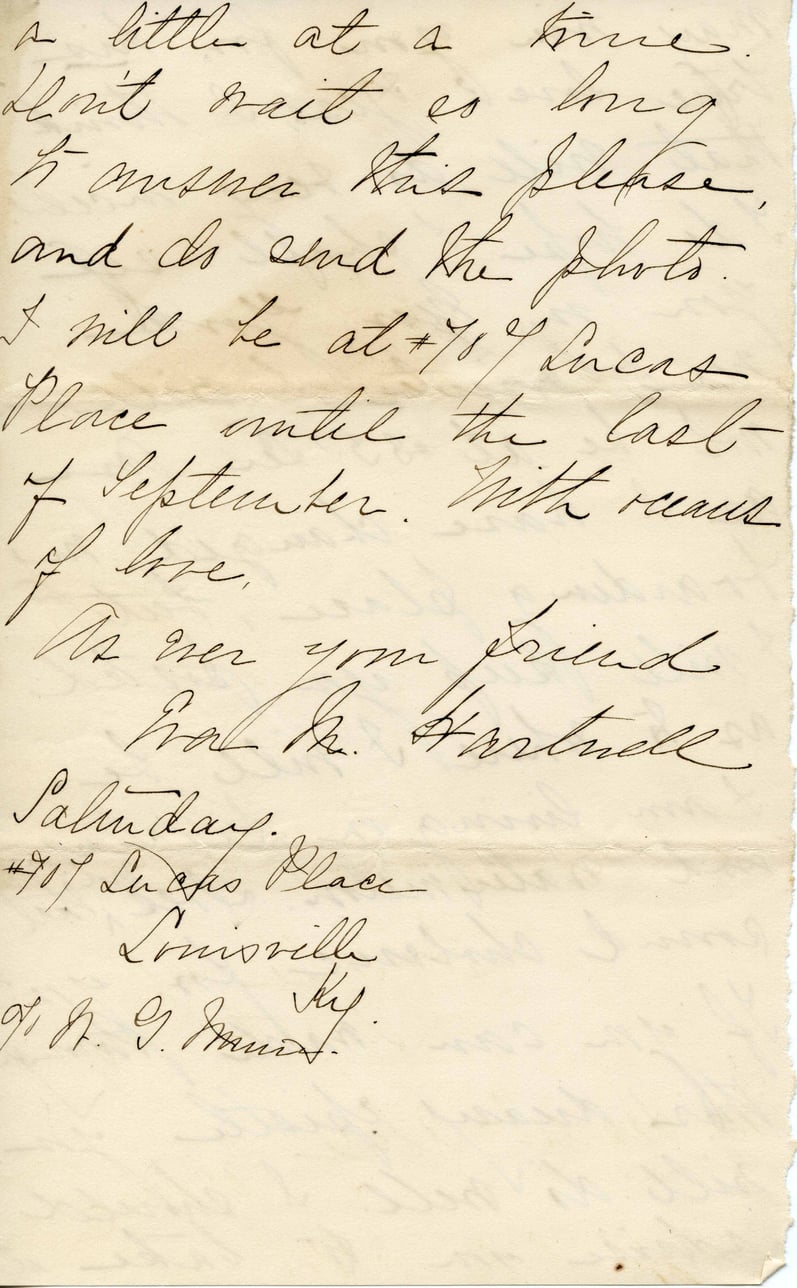 a little at a time.
Don't wait so long
to answer this please,
and do send the photo.
I will be at #707 Lucas
Place until the last
of September. With oceans
of love,
As ever your friend
Eva M. Hartwell
Saturday.
#707 Lucas Place
Louisville
Ky.
c/o W. G.